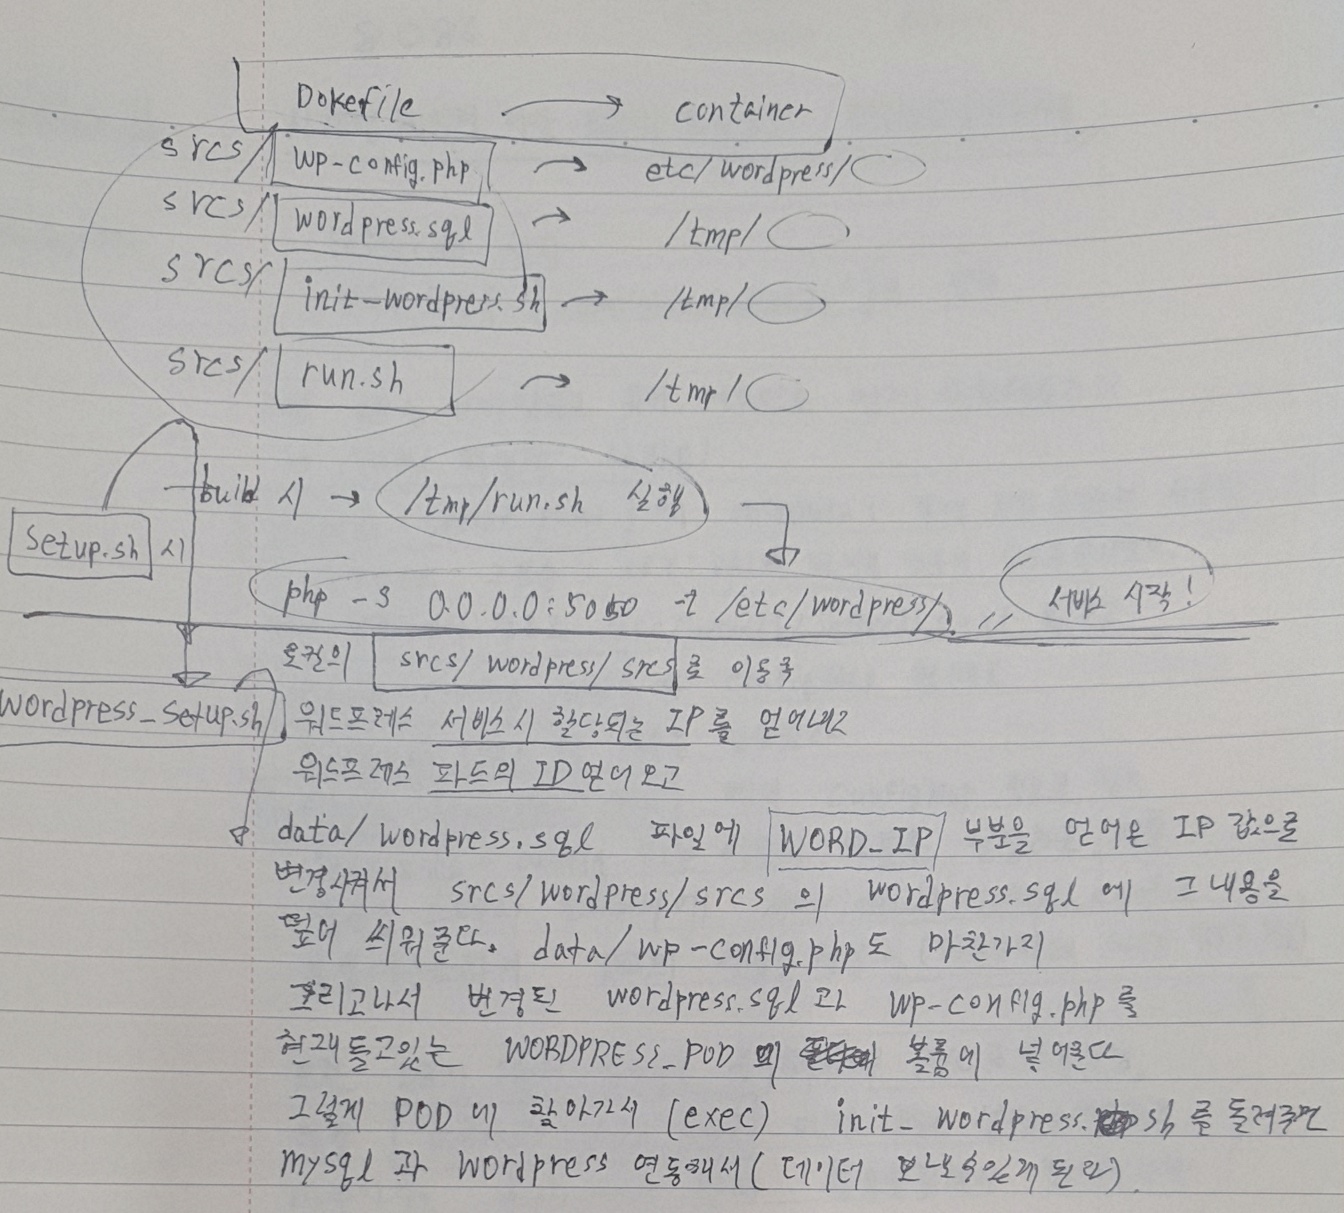 Dokefile → container
srcs/ wp-config.php → etc/wordpress/
srcs/ wordpress.sql → /tmp/
srcs/ init-wordpress.sh → /tmp/
srcs/ run.sh → /tmp/
build 시 → /tmp/run.sh 실행
Setup.sh 시
php -S 0.0.0.0:5050 -t /etc/wordpress/ 서비스 시작!
로컬의 srcs/wordpress/srcs로 이동후
wordpress_setup.sh 워드프레스 서비스시 할당되는 IP를 얻어내고
워드프레스 파드의 ID 얻어오고
data/wordpress.sql 파일에 WORD_IP 부분을 얻어온 IP 값으로
변경시켜서 srcs/wordpress/srcs 의 wordpress.sql 에 그 내용을
덮어 씌워준다. data/wp-config.php도 마찬가지
그리고나서 변경된 wordpress.sql 과 wp-config.php를
현재 돌고있는 WORDPRESS_POD 의 볼륨에 넣어준다
그렇게 POD에 찾아가서 (exec) init_wordpress.sh를 돌려주면
mysql 과 wordpress 연동해서 (데이터 보낼수있게 된다).